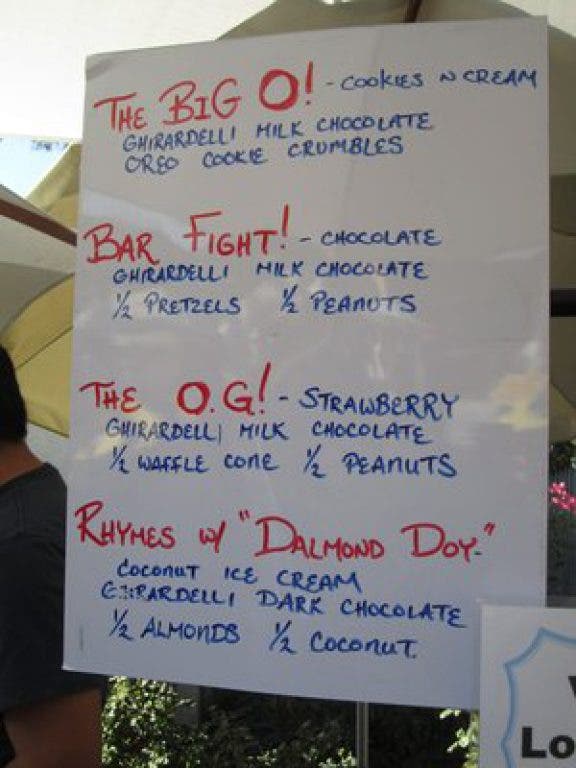 THE BIG O! - COOKIES N CREAM
GHIRARDELLI MILK CHOCOLATE
OREO COOKIE CRUMBLES
BAR FIGHT! - CHOCOLATE
GHIRARDELLI MILK CHOCOLATE
1/2 PRETZELS 1/2 PEANUTS
THE O.G! - STRAWBERRY
GHIRARDELLI MILK CHOCOLATE
1/2 WAFFLE CONE 1/2 PEANUTS
RHYMES W/ "DALMOND DOY."
COCONUT ICE CREAM
GHIRARDELLI DARK CHOCOLATE
1/2 ALMONDS 1/2 COCONUT.